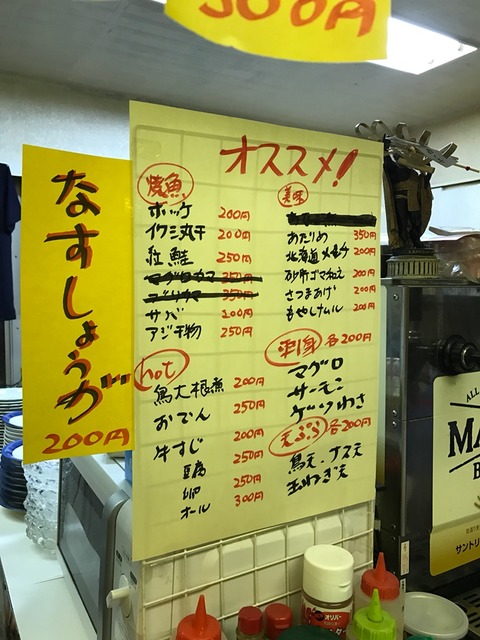 300円
なすしょうが
200円
オススメ!
焼魚
ホッケ 200円
イワシ丸干 200円
紅鮭 250円
マグロカマ 350円
ブリカマ 350円
サバ 200円
アジ干物 250円
hot
鳥大根煮 200円
おでん 250円
牛すじ 200円
豆腐 250円
250円
オール 300円
美味
あたりめ 350円
北海道 200円
砂肝ゴマ和え 200円
さつまあげ 200円
もやしナムル 200円
刺身 各200円
マグロ
サーモン
ゲソわさ
天ぷら 各200円
鳥天・ナス天
玉ねぎ天
ALL
MA
サントリー
オリバー